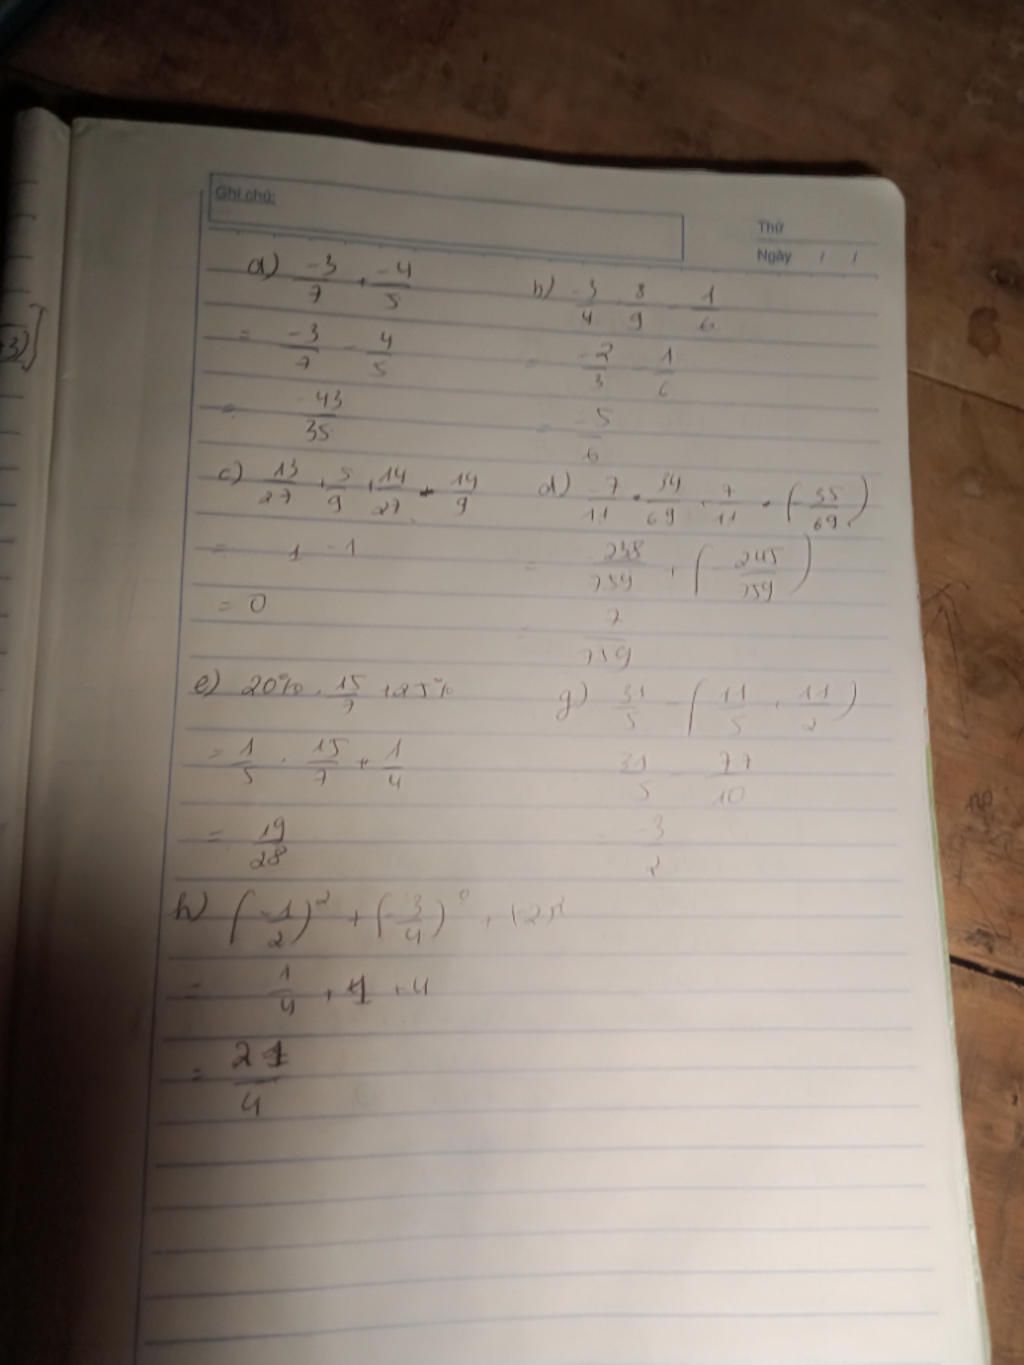 Ghi chú:
Thứ
Ngày / /
3)]
a) -3/7 + -4/5
= -3/7 - 4/5
= -43/35
b) -3/4 . 8/9 - 1/6
= -2/3 - 1/6
= -5/6
c) 13/27 + 5/9 + 14/27 - 14/9
= 1 - 1
= 0
d) -7/11 . 34/69 . 7/11 . (-35/69)
= 238/759 + (-245/759)
= 7/759
e) 20% . 15/7 + 25%
= 1/5 . 15/7 + 1/4
= 19/28
g) 31/5 - (11/5 + 11/2)
31/5 - 77/10
= -3/2
h) (-1/2)² + (-3/4)⁰ +
= 1/4 + 1 + 4
= 21/4